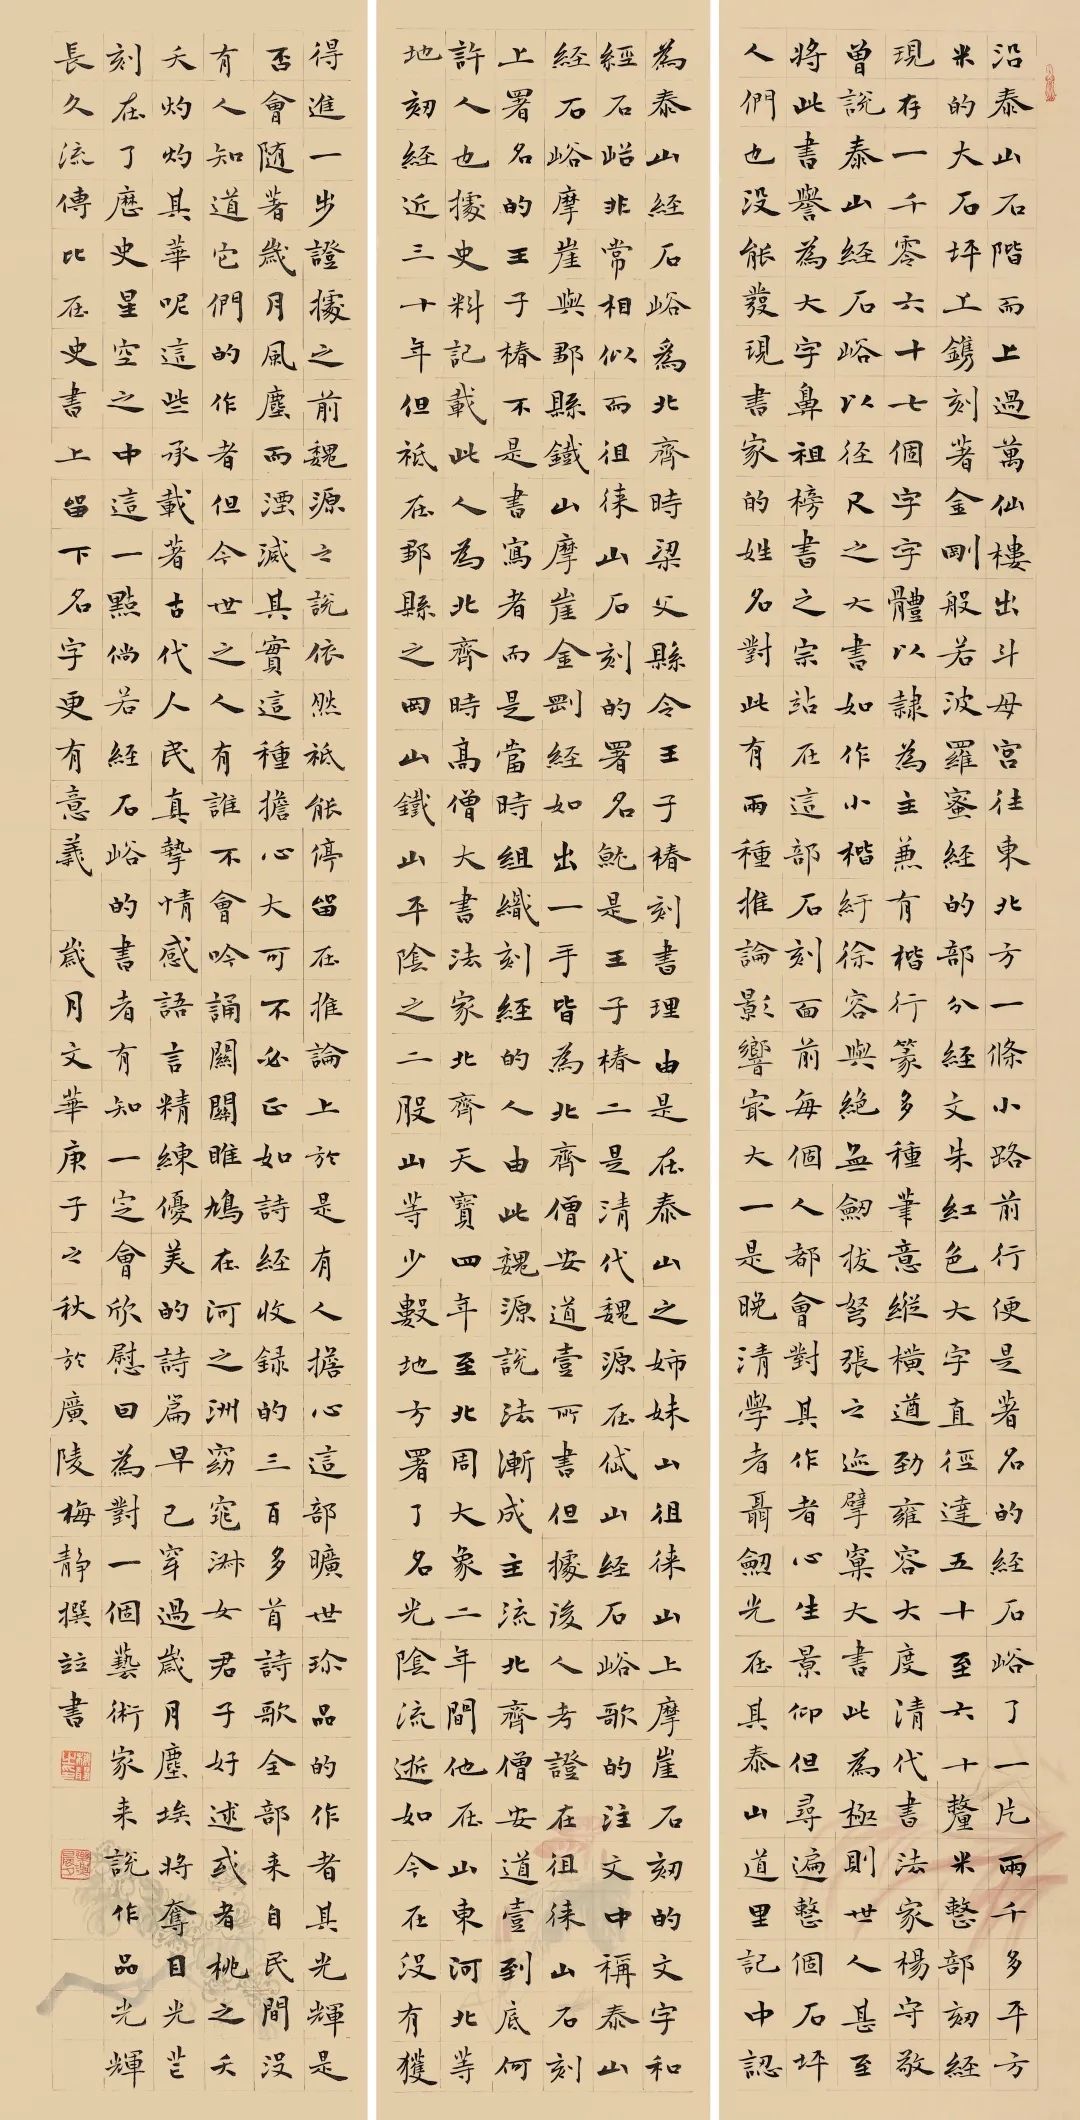 沿泰山石階而上過萬仙樓出斗母宮往東北方一條小路前行便是著名的經石峪了一片兩千多平方
米的大石坪上鐫刻著金剛般若波羅蜜經的部分經文朱紅色大字直徑達五十至六十釐米整部刻經
現存一千零六十七個字字體以隸為主兼有楷行篆多種筆意縱橫遒勁雍容大度清代書法家楊守敬
曾說泰山經石峪以徑尺之大書如作小楷紆徐容與絕無劍拔弩張之迹擘窠大書此為極則世人甚至
將此書譽為大字鼻祖榜書之宗站在這部石刻面前每個人都會對其作者心生景仰但尋遍整個石坪
人們也沒能發現書家的姓名對此有兩種推論影響最大一是晚清學者聶劍光在其泰山道里記中認
為泰山經石峪為北齊時梁父縣令王子椿刻書理由是在泰山之姊妹山徂徠山上摩崖石刻的文字和
經石峪非常相似而徂徠山石刻的署名就是王子椿二是清代魏源在岱山經石峪歌的注文中稱泰山
經石峪摩崖與鄒縣鐵山摩崖金剛經如出一手皆為北齊僧安道壹所書但據後人考證在徂徠山石刻
上署名的王子椿不是書寫者而是當時組織刻經的人由此魏源說法漸成主流北齊僧安道壹到底何
許人也據史料記載此人為北齊時高僧大書法家北齊天寶四年至北周大象二年間他在山東河北等
地刻經近三十年但祗在鄒縣之岡山鐵山平陰之二股山等少數地方署了名光陰流逝如今在沒有獲
得進一步證據之前魏源之說依然祗能停留在推論上於是有人擔心這部曠世珍品的作者其光輝是
否會隨著歲月風塵而湮滅其實這種擔心大可不必正如詩經收録的三百多首詩歌全部來自民間沒
有人知道它們的作者但今世之人有誰不會吟誦關關雎鳩在河之洲窈窕淑女君子好逑或者桃之夭
夭灼灼其華呢這些承載著古代人民真摯情感語言精練優美的詩篇早已穿過歲月塵埃將奪目光芒
刻在了歷史星空之中這一點倘若經石峪的書者有知一定會欣慰因為對一個藝術家來說作品光輝
長久流傳比在史書上留下名字更有意義 歲月文華庚子之秋於廣陵梅静撰竝書